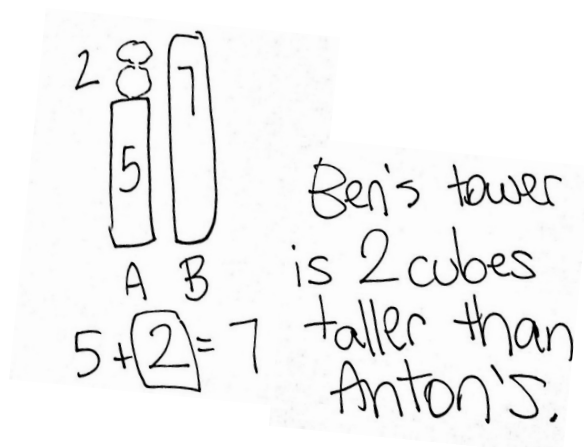 2
7
5
A B
5 + 2 = 7
Ben's tower
is 2 cubes
taller than
Anton's.